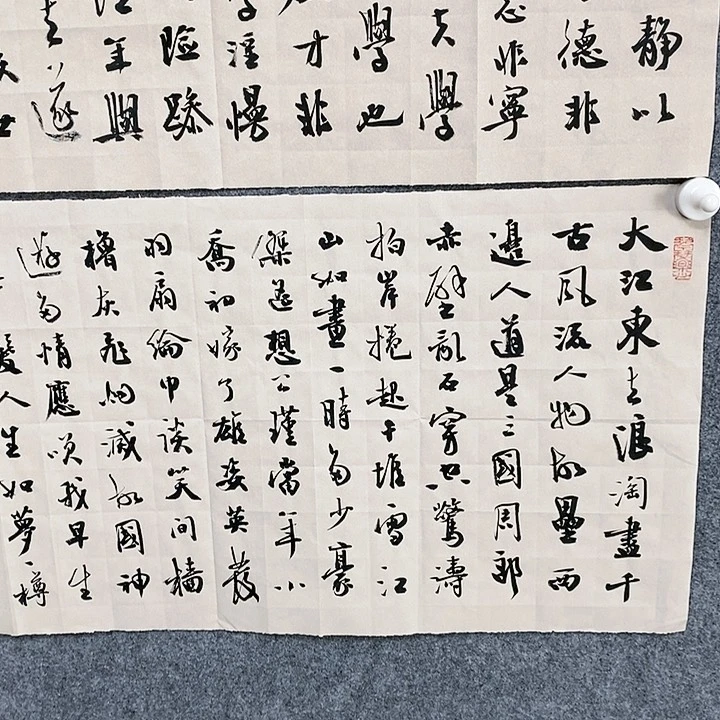 靜以
德非
志非寧
夫學
學也
才非
淫慢
險躁
年與
去遂
世
大江東去浪淘盡千
古風流人物故壘西
邊人道是三國周郎
赤壁亂石穿空驚濤
拍岸捲起千堆雪江
山如畫一時多少豪
傑遙想公瑾當年小
喬初嫁了雄姿英發
羽扇綸巾談笑間檣
櫓灰飛烟滅故國神
遊多情應笑我早生
髮人生如夢一樽